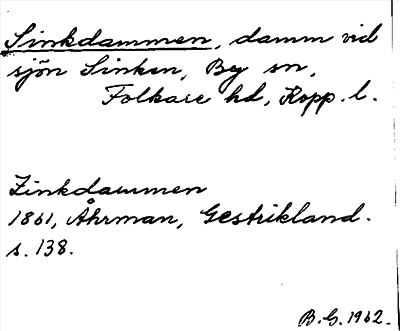 Sinkdammen, damm vid
sjön Sinken, By sn,
Folkare hd, Kopp. l.
Zinkdammen
1861, Åhrman, Gestrikland.
s. 138.
B. G. 1962.